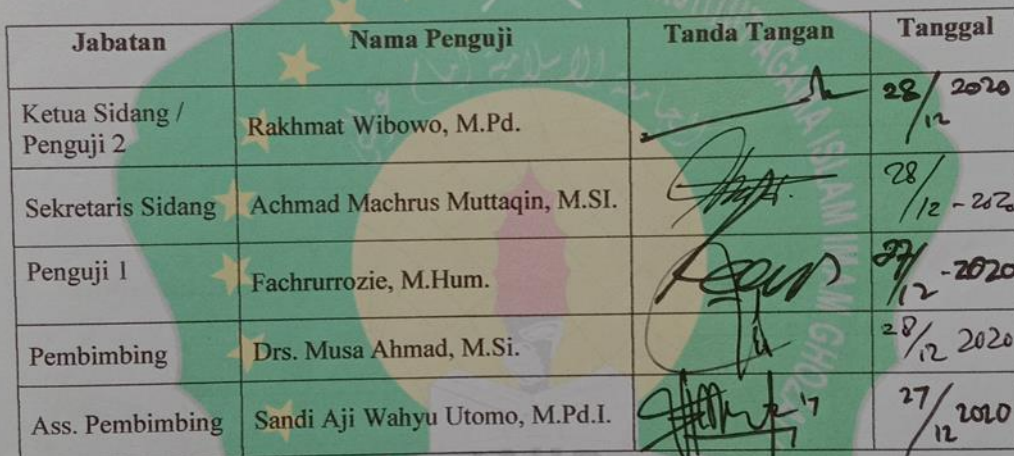 Jabatan Nama Penguji Tanda Tangan Tanggal
Ketua Sidang /
Penguji 2
Rakhmat Wibowo, M.Pd.
28/12 2020
Sekretaris Sidang Achmad Machrus Muttaqin, M.SI. 28/12 - 202
Penguji 1 Fachrurrozie, M.Hum. 27/12 - 2020
Pembimbing Drs. Musa Ahmad, M.Si. 28/12 2020
Ass. Pembimbing Sandi Aji Wahyu Utomo, M.Pd.I. 27/12 2020
AGAMA ISLAM IMAM GHOZA